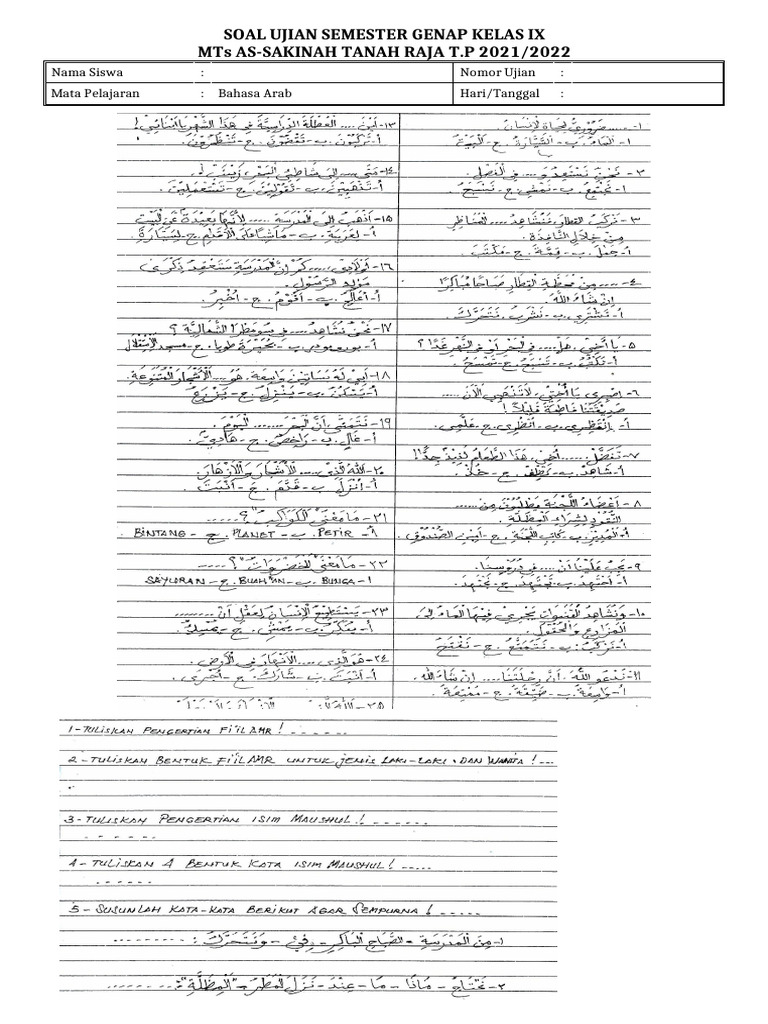 SOAL UJIAN SEMESTER GENAP KELAS IX
MTs AS-SAKINAH TANAH RAJA T.P 2021/2022
Nama Siswa : Nomor Ujian :
Mata Pelajaran : Bahasa Arab Hari/Tanggal :
١- ..... ضَرُورِيٌّ لِحَيَاةِ الإِنْسَانِ.
أ- الماء. ب- السَّيَّارَةُ. ج- البَيْتُ
٢- نَحْنُ نَسْتَعِدُّ و .... في الفَصْلِ.
أ- نَجْتَمِعُ. ب- نَمْشِي. ج- نَسْبَحُ
٣- نَرْكَبُ القِطَارَ، نُشَاهِدُ .... المَنَاظِرِ
مِنْ خِلَالِ النَّافِذَةِ.
أ- جَمَل. ب- قِمَّة. ج- مَكْتَب.
٤- .... مِنْ مَحَطَّةِ القِطَارِ صَبَاحًا مُبَاكِرًا
إِنْ شَاءَ اللهُ.
أ- نَشْتَرِي ب- نَشْرَبُ. نَتَحَرَّكُ.
٥- يَا أَخِي، هَلْ .... في البَحْرِ أَوْ في النَّهْرِ غَدًا؟
أ- نَكْتُبُ. ب- نَسْبَحُ. ج- نَمْسَحُ.
٦- اِصْبِرِي يَا أُخْتِي، لَا تَذْهَبِي الآنَ
صَدِيقَتَنَا فَاطِمَةَ قَلِيلًا!
أ- اِنْتَظِرِي. ب- اُنْظُرِي. ج- عَلِّمِي.
٧- تَفَضَّلْ .... أَخِي، هَذَا الطَّعَامُ لَذِيذٌ جِدًّا!
أ- شَاهِدْ. ب- نَظِّفْ. ج- خُذْ.
٨- أَعْضَاءُ اللَّجْنَةِ يَطْلُبُونَ مِنْ ....
النُّقُودَ لِشِرَاءِ المِظَلَّةِ.
أ- المُدِيرِ. ب- كَاتِبِ اللَّجْنَةِ. ج- أَمِينِ الصُّنْدُوقِ.
٩- يَجِبُ عَلَيْنَا أَنْ .... في دُرُوسِنَا.
أ- أَجْتَهِدَ. ب- تَجْتَهِدَ. ج- نَجْتَهِدَ.
١٠- وَنُشَاهِدُ القَنَوَاتِ يَجْرِي فِيهَا المَاءُ إِلَى
المَزَارِعِ وَالحُقُولِ.
أ- نَرْكَبُ ب- نَتَمَتَّعُ. ج- نَفْتَحُ
١١- نَدْعُو اللهَ، أَنَّ رِحْلَتَنَا .... إِنْ شَاءَ اللهُ.
أ- وَاسِعَة. ب- ضَيِّقَة. ج- مُمْتِعَة.
١٣- أَيْنَ .... العُطْلَةَ الدِّرَاسِيَّةَ في هَذَا الشَّهْرِ يَا أَبْنَائِي!
أ- تَرْكَبُونَ. ب- تَقْضُونَ. ج- تَنْتَظِرُونَ.
١٤- مَتَى .... إِلَى شَاطِئِ البَحْرِ، زَيْنَبُ؟
أ- تَذْهَبِينَ. ب- تَقُولِينَ. ج- تَسْتَعْمِلِينَ.
١٥- أَذْهَبُ إِلَى المَدْرَسَةِ .... لِأَنَّهَا بَعِيدَةٌ عَنِ البَيْتِ
أ- ب- مَاشِيًا عَلَى الأَقْدَامِ. ج- بِسَيَّارَةٍ
١٦- أَوْلَادِي، .... كُمْ إِنَّ المَدْرَسَةَ سَتَعْقِدُ ذِكْرَى
مَوْلِدِ الرَّسُولِ.
أ- ب- أَقُومُ. ج- أُخْبِرُ.
١٧- نَحْنُ نُشَاهِدُ .... في سُومَطْرَا الشِّمَالِيَّةِ؟
أ- بوروبودور. ب- بُحَيْرَة طوبا. ج- مسجد الاستقلال
١٨- أَبِي لَهُ بَسَاتِينُ وَاسِعَةٌ. هُوَ .... الأَشْجَارَ المُتَنَوِّعَةَ.
أ- يَسْكُنُ. ب- يَنْزِلُ. ج- يَزْرَعُ
١٩- نَتَمَنَّى أَنَّ البَحْرَ .... اليَوْمَ.
أ- غَالٍ. ب- رَاخِصٌ. ج- هَادِئٌ.
٢٠- اللهُ الَّذِي .... الأَشْجَارَ وَالأَزْهَارَ.
أ- أَنْزَلَ ب- قَسَّمَ. ج- أَنْبَتَ.
٢١- مَا مَعْنَى "الكَوَاكِب"؟ ....
أ- PETIR. ب- PLANET. ج- BINTANG
٢٢- مَا مَعْنَى "الخَضْرَوَات"؟ ....
أ- BUNGA. ب- BUAH²AN. ج- SAYURAN
٢٣- يَسْتَطِيعُ الإِنْسَانُ بِعَقْلٍ أَنْ ........
أ- يُفَكِّرَ. ب- يَمْشِيَ. ج-
٢٤- هُوَ الَّذِي .... الأَنْهَارَ في الأَرْضِ.
أ- أَنْبَتَ. ب- شَارَكَ. ج- أَجْرَى.
٢٥-
1- TULISKAN PENGERTIAN FI'IL AMR! ......
2- TULISKAN BENTUK FI'IL AMR UNTUK JENIS LAKI-LAKI. DAN WANITA! ...
3- TULISKAN PENGERTIAN ISIM MAUSHUL! ......
4- TULISKAN 4 BENTUK KATA ISIM MAUSHUL! .....
5- SUSUNLAH KATA-KATA BERIKUT AGAR SEMPURNA! .....
١- مِنَ المَدْرَسَةِ - الصَّبَاحِ البَاكِرِ - فِي - وَنَتَحَرَّكُ : .........
٢- نَحْتَاجُ - مَاذَا - مَا - عِنْدَ - نَزَلَ المَطَر - "المِظَلَّة" : .......